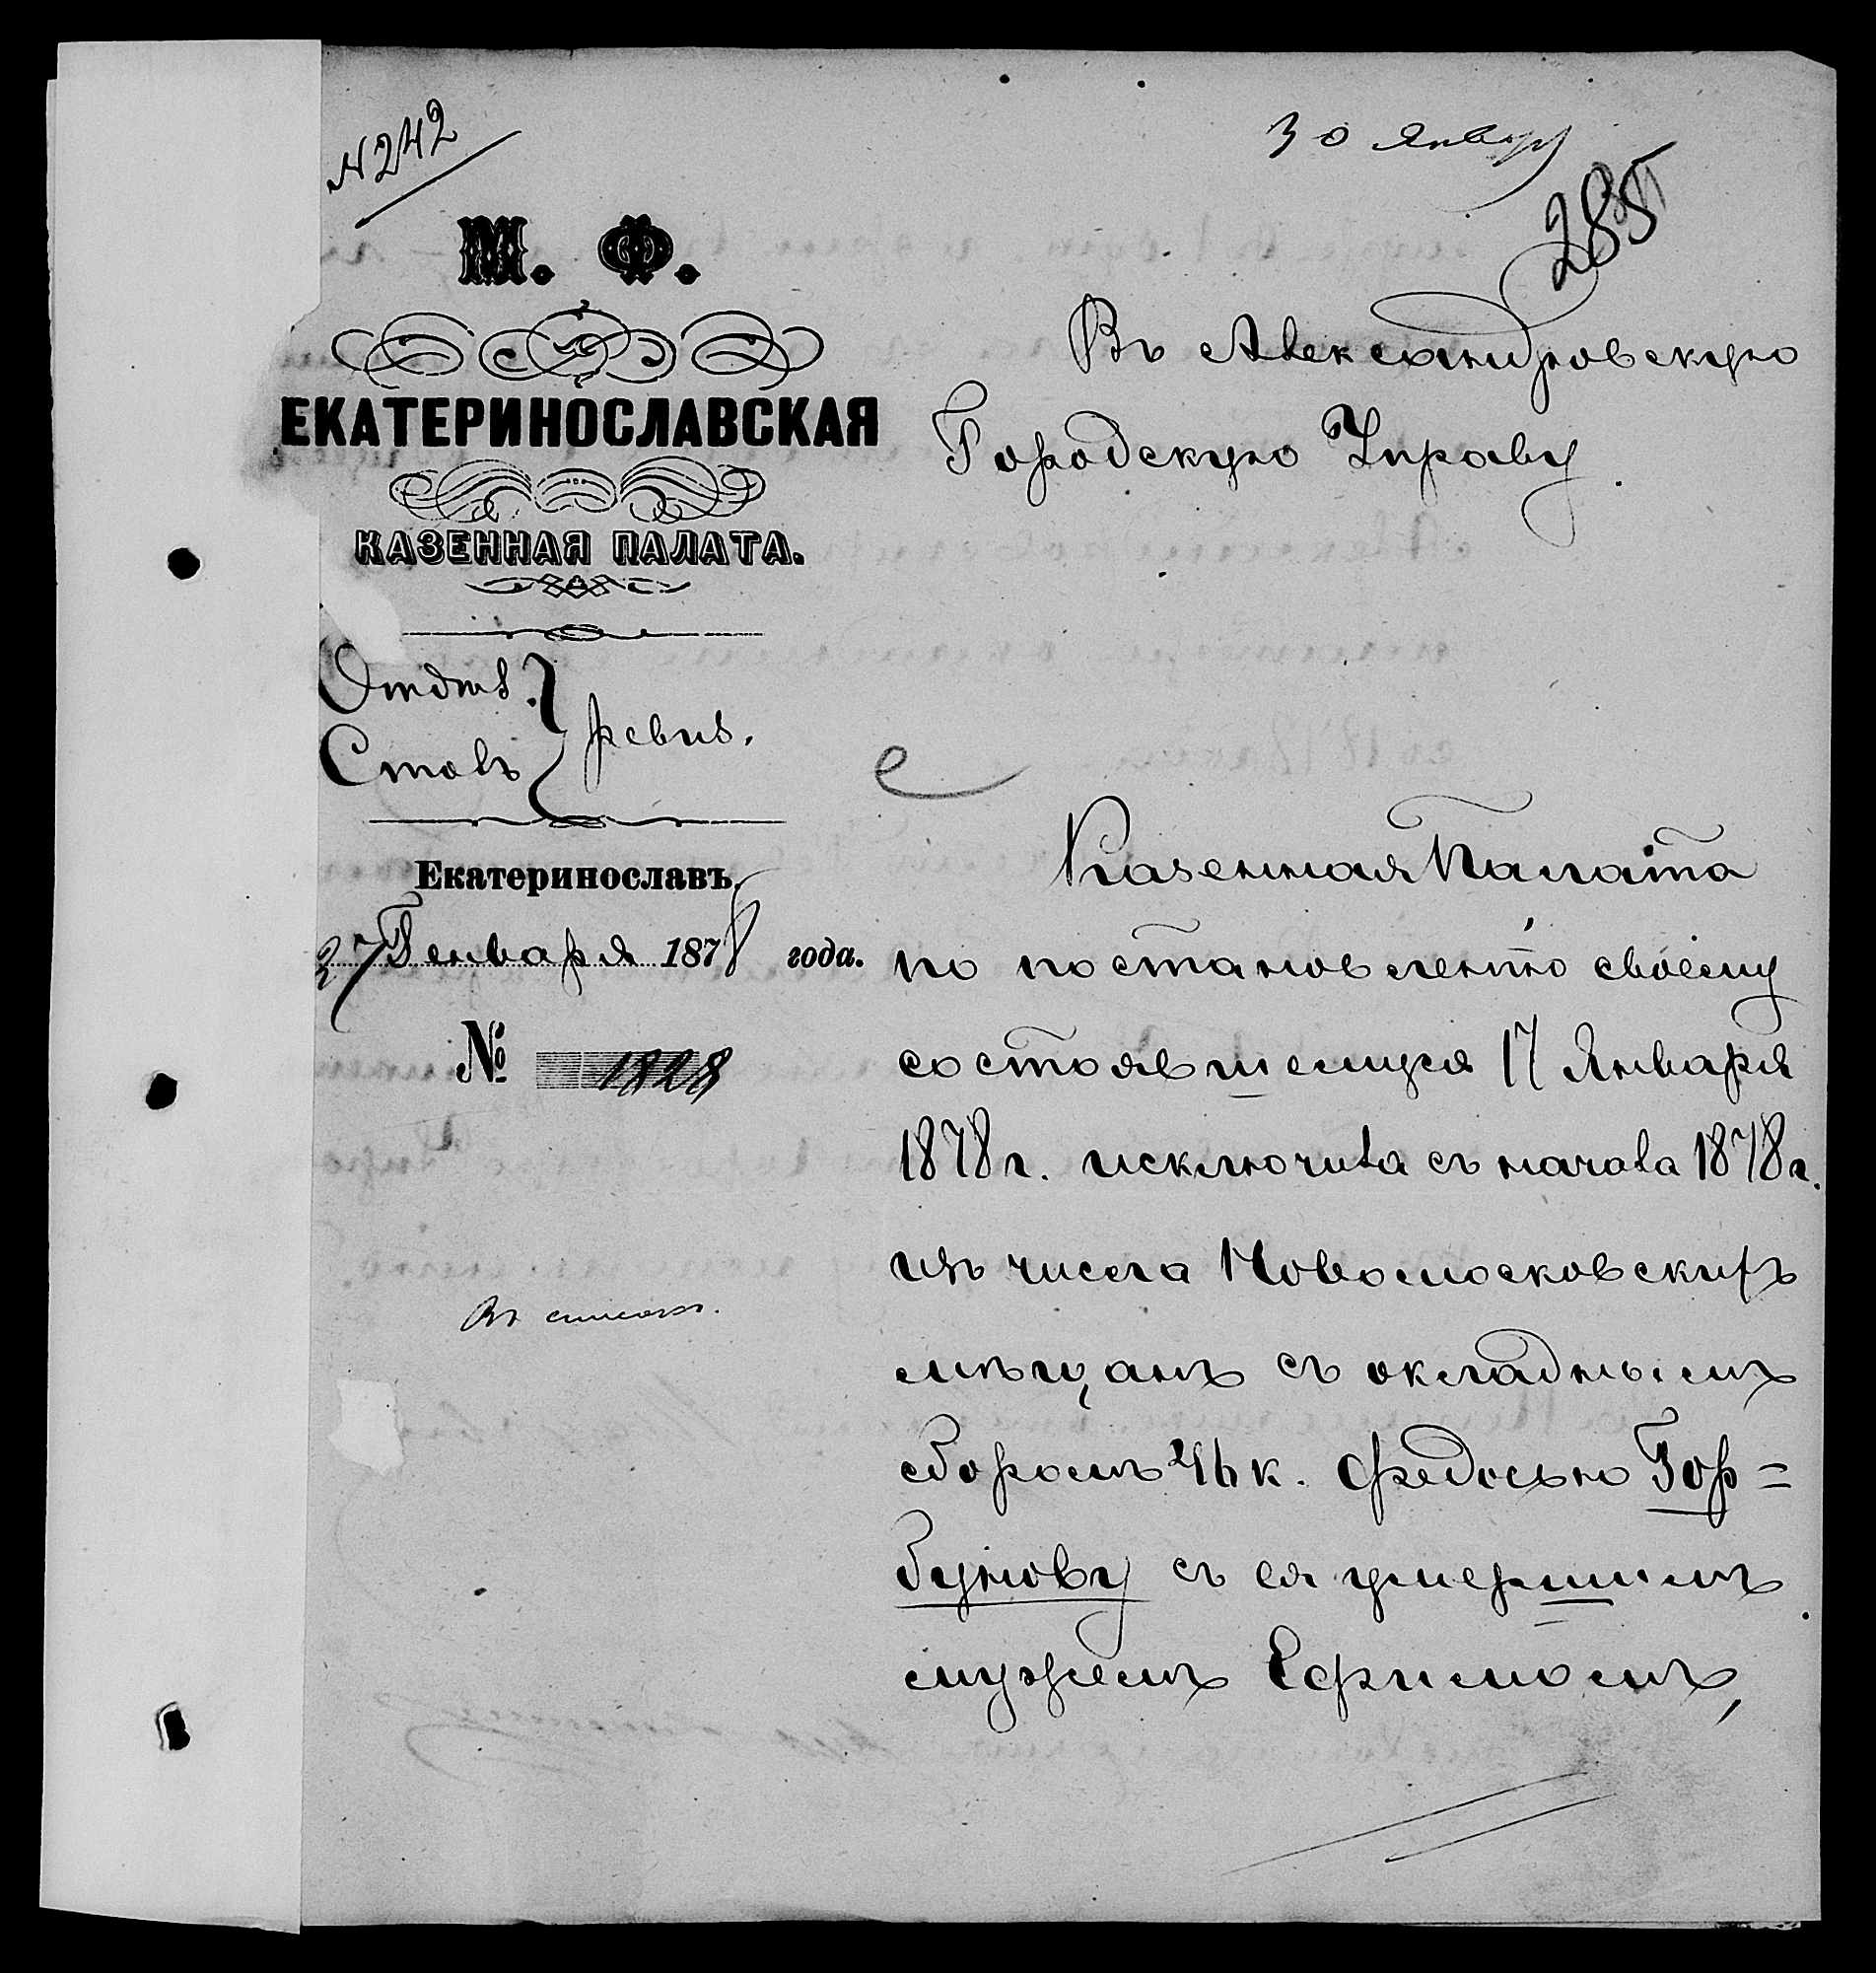 N 242
30 Январ
285
М. Ф.
ЕКАТЕРИНОСЛАВСКАЯ
КАЗЕННАЯ ПАЛАТА.
Отдѣл.
Столъ
ревиз.
Екатеринославъ.
27 Генваря 1878 года.
№ 1828
Въ списокъ.
Въ Александровскую
Городскую Управу
Казенная Палата
по постановленію своему
состоявшемуся 17 Января
1878 г. исключила съ начала 1878 г.
изъ числа Новомосковскихъ
мѣщанъ съ окладнымъ
сборомъ 46 к. Федосью Гор=
бунову съ ея умершимъ
мужемъ Ефимомъ,